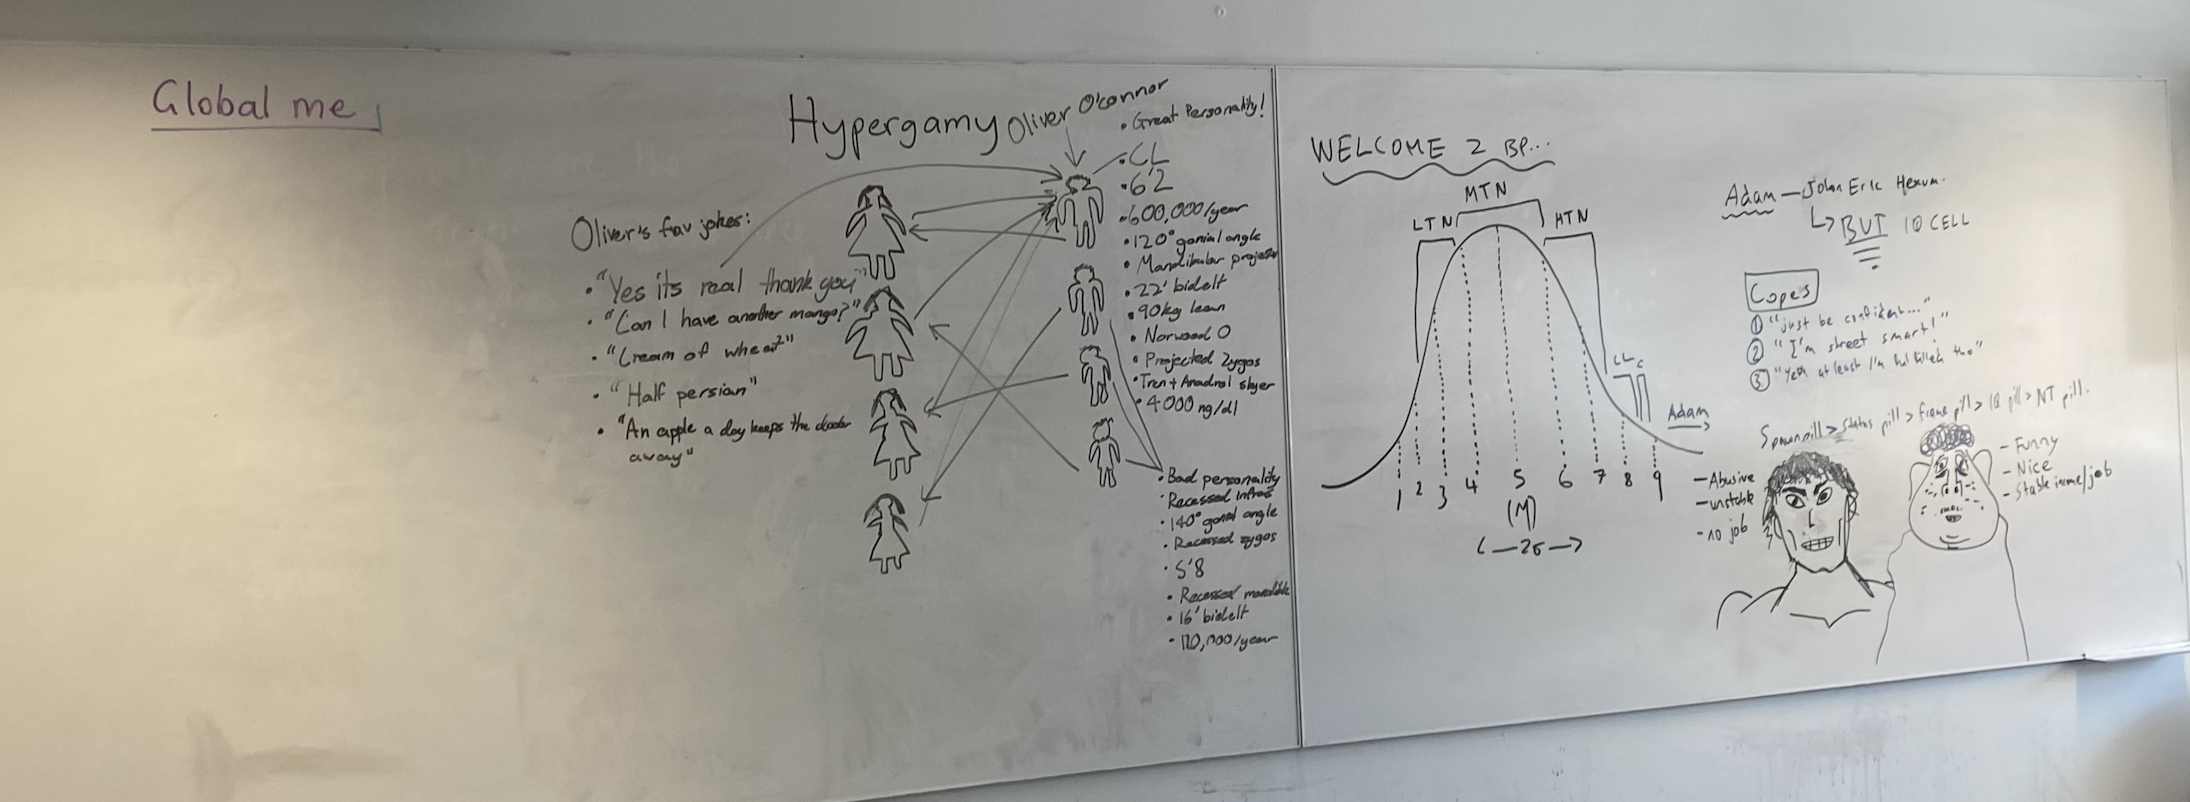 Global me
Hypergamy
Oliver O'connor
• Great Personality!
• CL
• 6'2
• 600,000/year
• 120° gonial angle
• Mandibular
• 22' bidelt
• 90kg lean
• Norwood 0
• Projected Zygos
• Tren + Anadrol slayer
• 4000 ng/dl
Oliver's fav jokes:
• "Yes its real thank you"
• "Can I have another mango?"
• "Cream of wheat"
• "Half persian"
• "An apple a day keeps the doctor
away"
• Bad personality
• Recessed infras
• 140° gonial angle
• Recessed zygos
• 5'8
• Recessed mandible
• 16' bidelt
• 110,000/year
WELCOME 2 BP...
MTN
LTN
HTN
CL C
Adam
1 2 3 4 5 6 7 8 9
(M)
← 2σ →
Adam — John Eric Hexum.
↳ BUT IQ CELL
Copes
① "just be confident..."
② "I'm street smart!"
③ "Yeah at least I'm tho"
status pill > frame pill > IQ pill > NT pill.
– Abusive
– unstable
– no job
– Funny
– Nice
– Stable income/job